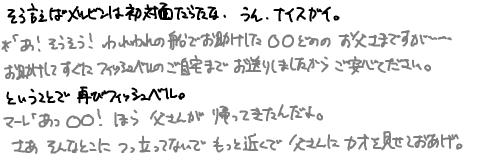 そう言えばメルビンは初対面だったな、うん、ナイスガイ。
ホ「あ！そうそう！われわれの船でお助けした〇〇どのの お父さまですが〜〜
お助けしてすぐにフィッシュベルのご自宅まで お送りしましたから ご安心ください。
ということで 再びフィッシュベル。
マーレ「あっ〇〇！ほら 父さんが 帰ってきたんだよ。
さあ そんなとこに つっ立ってないで もっと近くで 父さんに カオを見せておあげ。